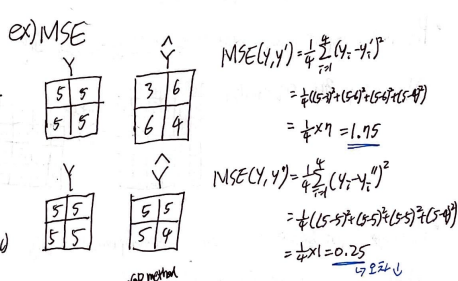 ex) MSE
Y
Ŷ
5 5
5 5
3 6
6 4
MSE(Y,Y')=1/4 Σ_{i=1}^{4} (y_i-y_i')²
=1/4((5-3)²+(5-6)²+(5-6)²+(5-4)²)
=1/4×7=1.75
Y
Ŷ
5 5
5 5
5 5
5 4
MSE(Y,Y'')=1/4 Σ_{i=1}^{4} (y_i-y_i'')²
=1/4((5-5)²+(5-5)²+(5-5)²+(5-4)²)
=1/4×1=0.25
↳오차↓
method